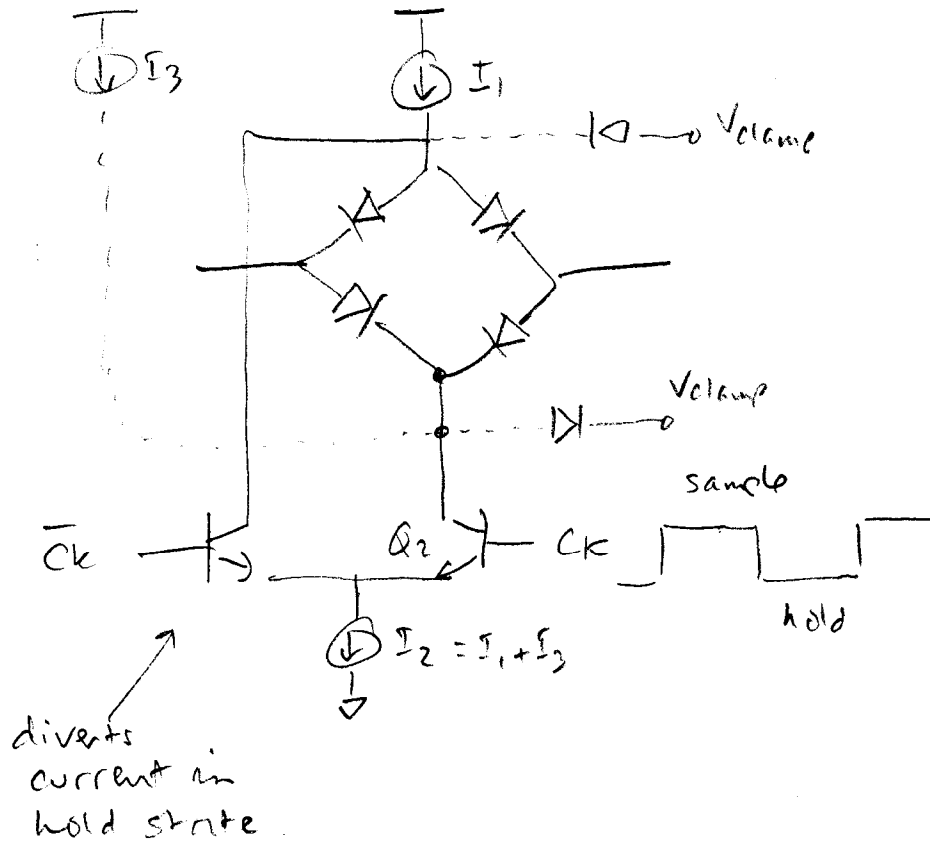 I3
I1
Vclamp
Vclamp
sample
C̅k̅
Q2
CK
hold
I2 = I1 + I3
diverts
current in
hold state